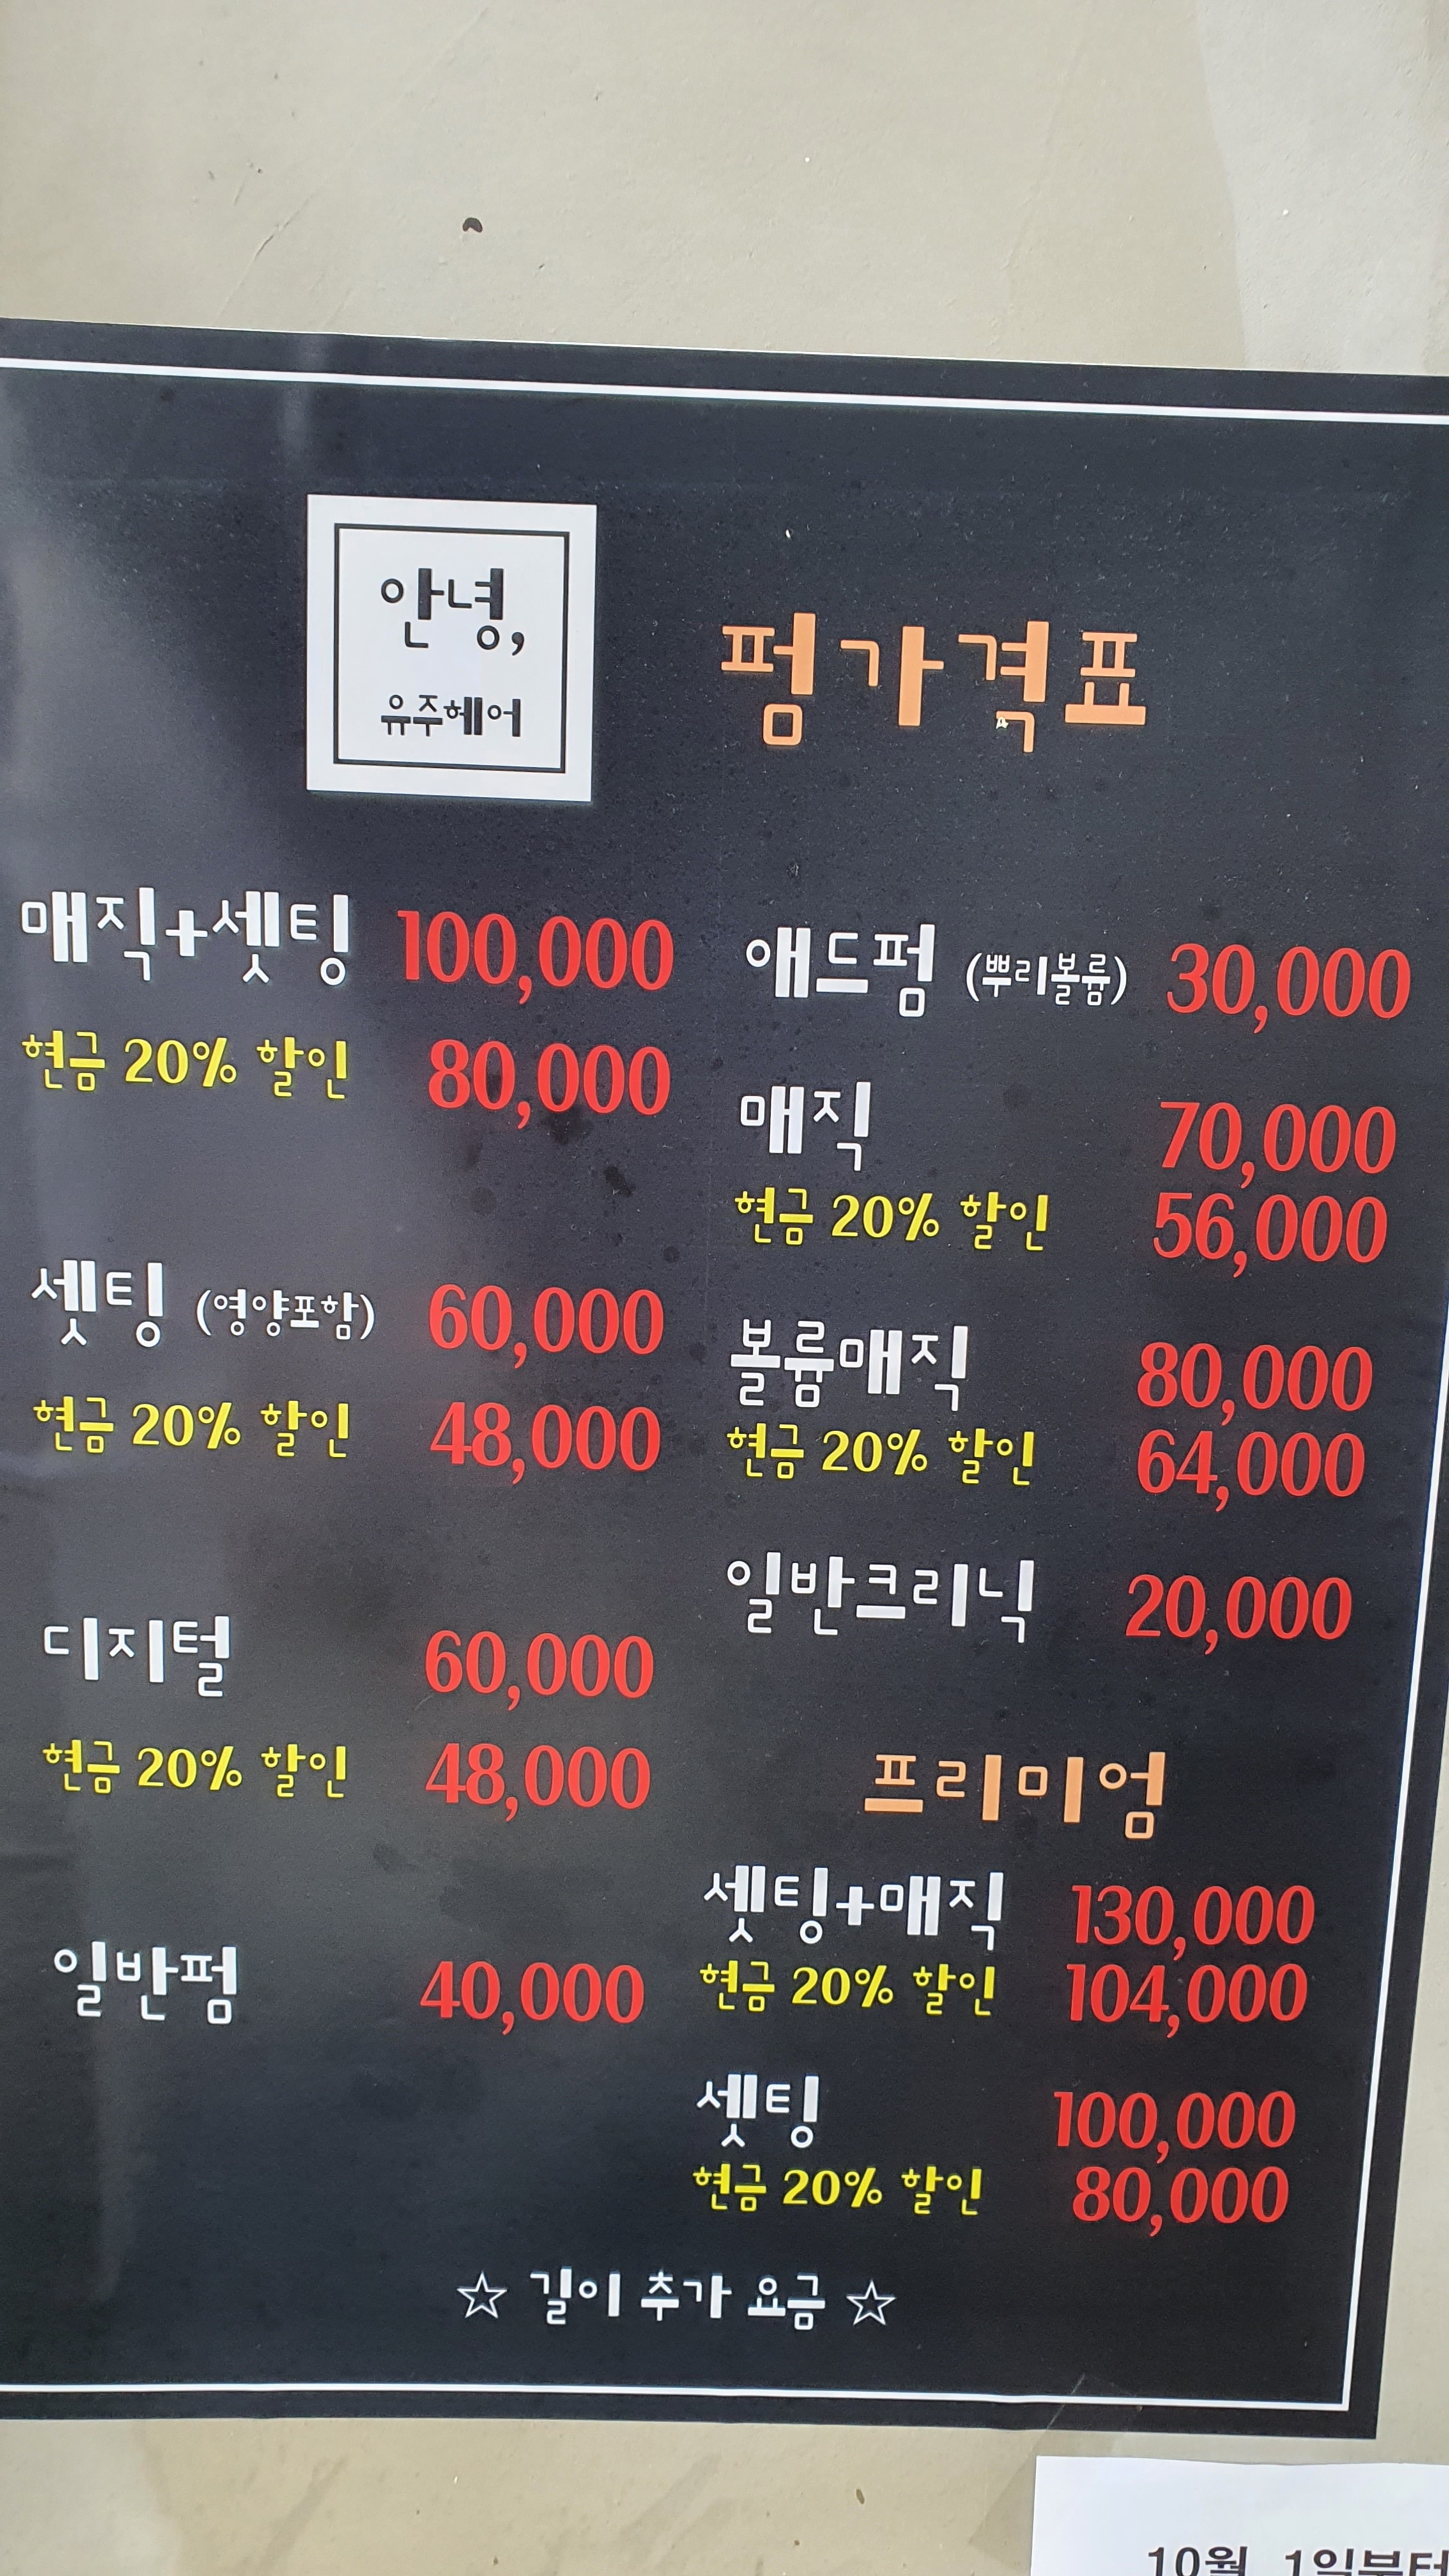 안녕,
유주헤어
펌가격표
매직+셋팅 100,000
현금 20% 할인 80,000
셋팅 (영양포함) 60,000
현금 20% 할인 48,000
디지털 60,000
현금 20% 할인 48,000
일반펌 40,000
애드펌 (뿌리볼륨) 30,000
매직 70,000
현금 20% 할인 56,000
볼륨매직 80,000
현금 20% 할인 64,000
일반크리닉 20,000
프리미엄
셋팅+매직 130,000
현금 20% 할인 104,000
셋팅 100,000
현금 20% 할인 80,000
☆ 길이 추가 요금 ☆
10월 1일부터